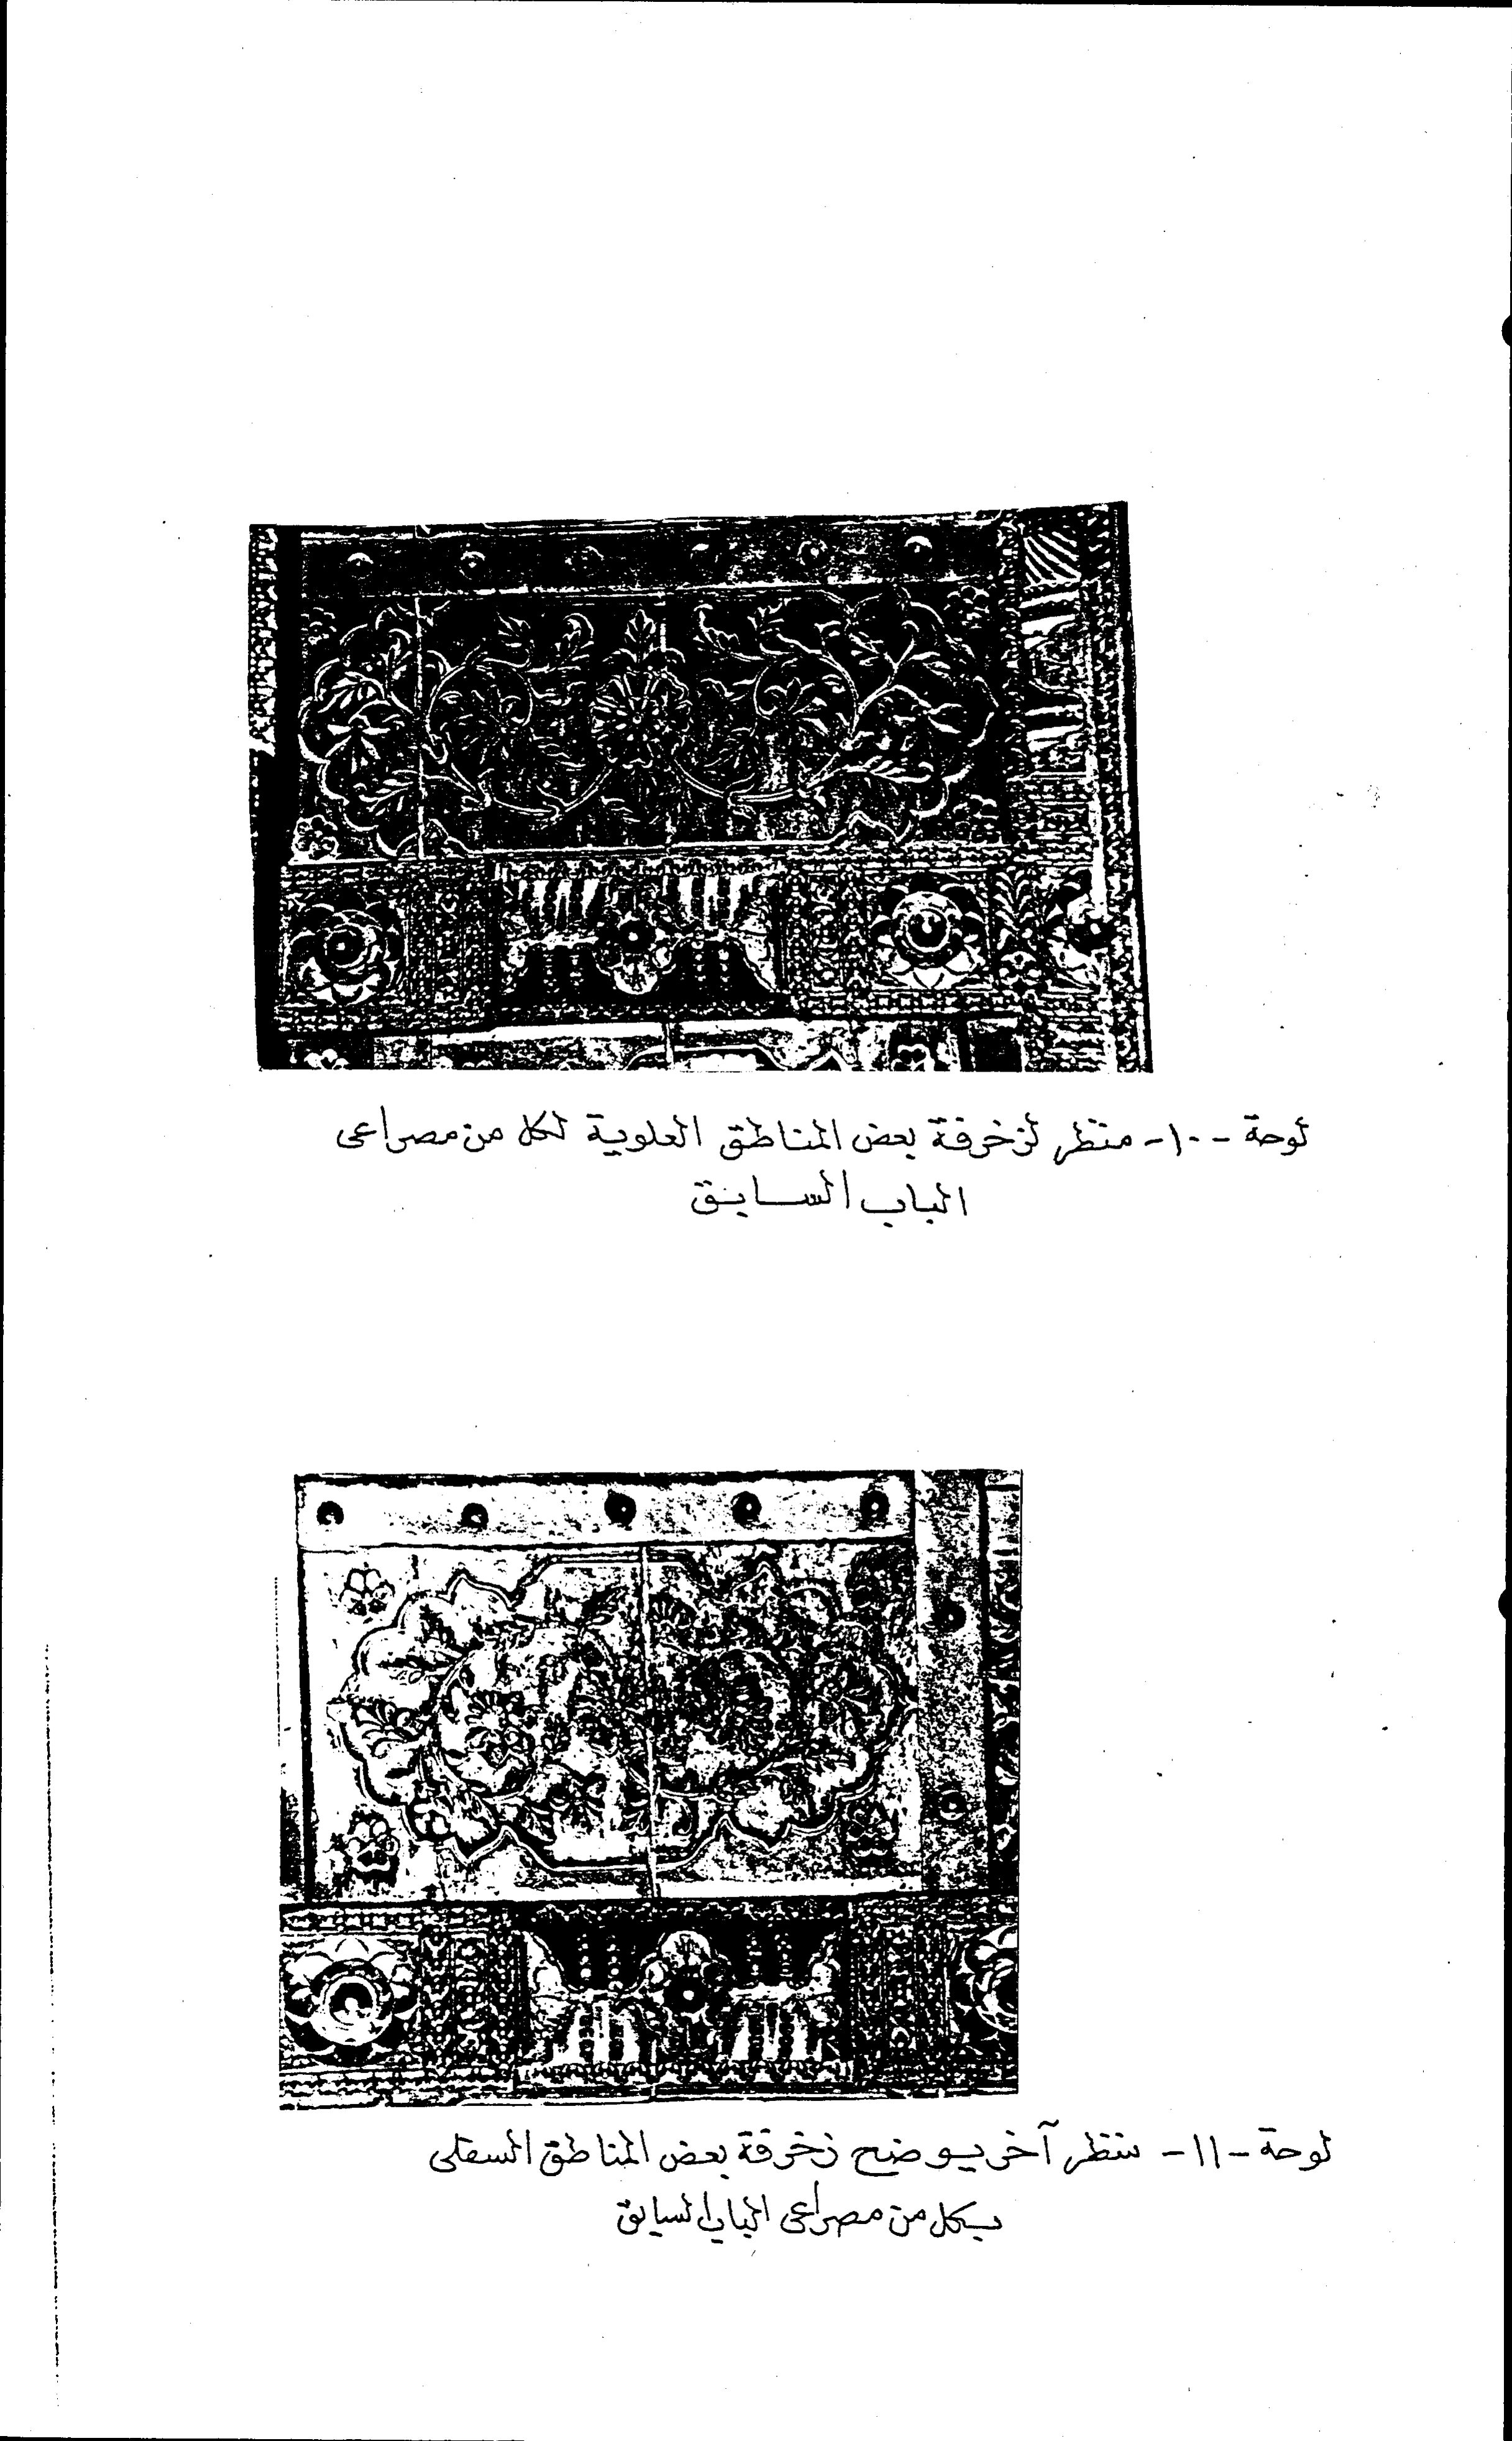 لوحة -١٠- منظر لزخرفة بعض المناطق العلوية لكل من مصراعى
الباب السابق
لوحة -١١- منظر آخر يوضح زخرفة بعض المناطق السفلى
بكل من مصراعى الباب السابق